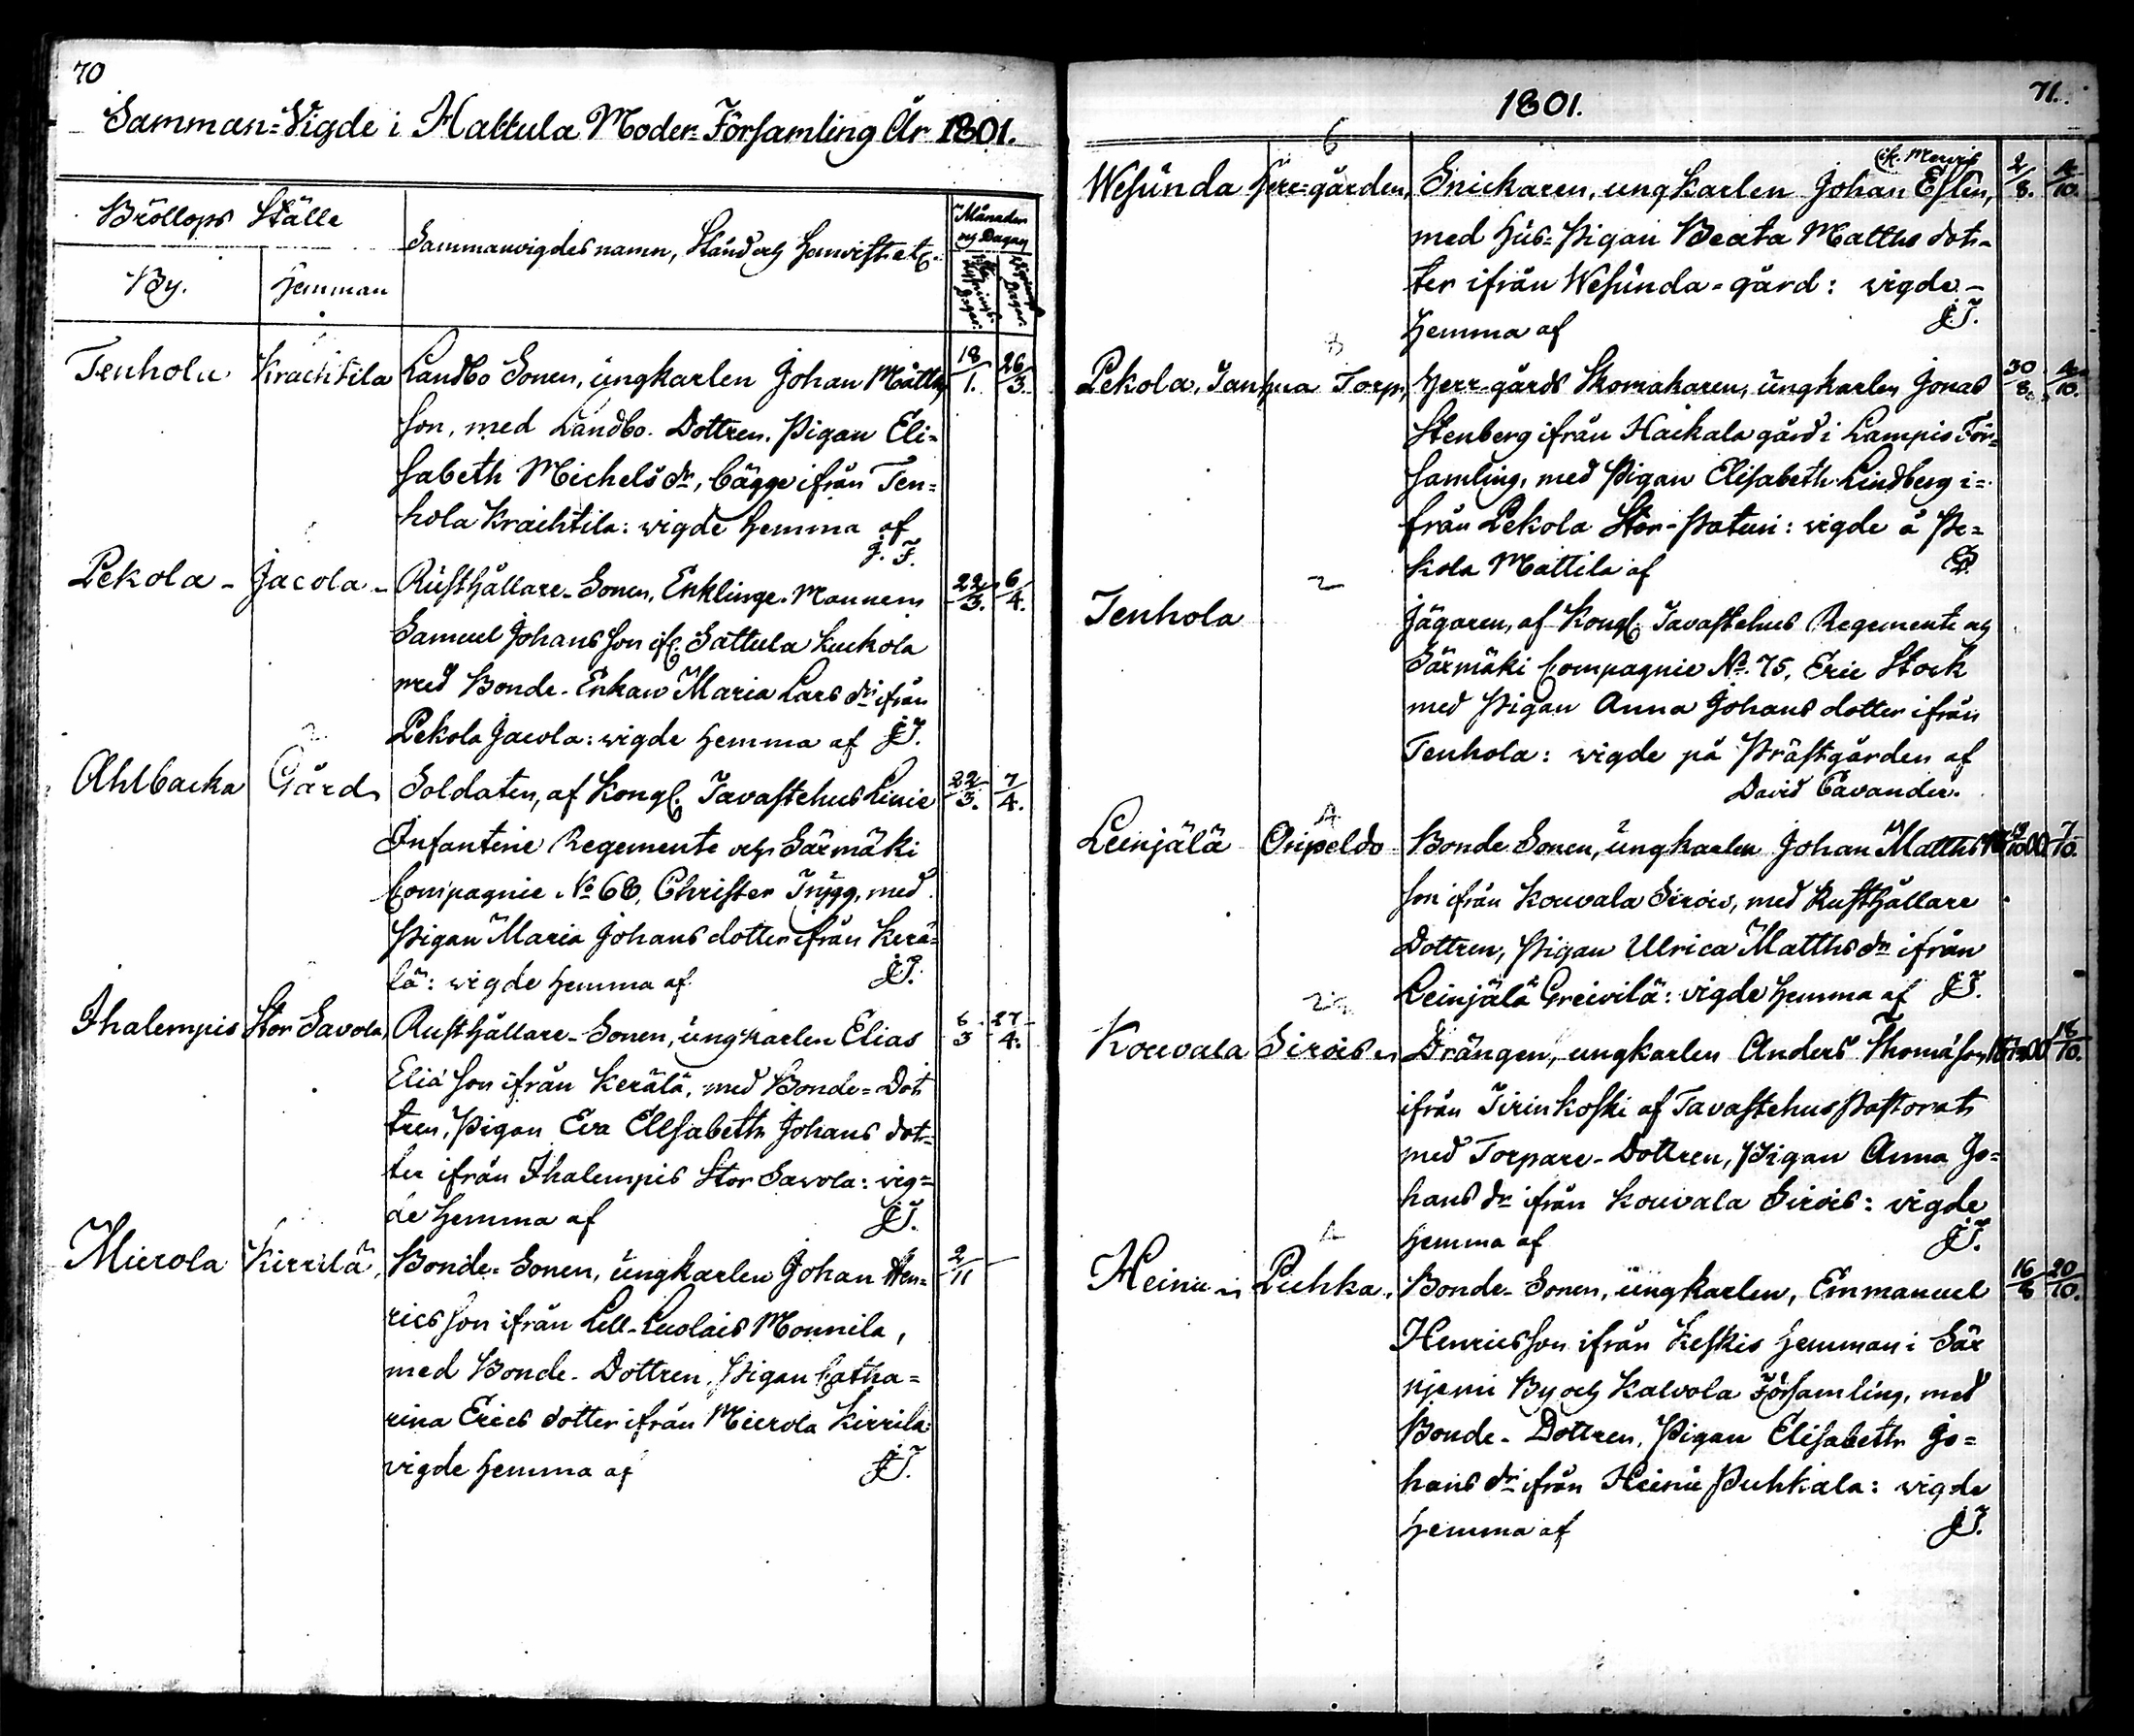 70
Samman=Vigde i Hattula Moder=Församling År 1801.
Bröllops Ställe
By.
Hemman
Sammanvigdes namn, Stånd och Hemvist etc.
Månader
og Dagar
Tenhola Krachtila Landbo Sonen, ungkarlen Johan Matts 18/1. 26/3.
son, med Landbo-Dottren, Pigan Eli=
sabeth Michels dr, bägge ifrån Ten=
hola Krachtila: vigde hemma af
J. T.
Pekola - Jacola - Rusthållare-Sonen, Enklinge-Mannen 22/3. 6/4.
Samuel Johansson if. Sattula Kuckola
med Bonde-Enkan Maria Lars dr ifrån
Pekola Jacola: vigde hemma af JT.
Ahlbacka Gård Soldaten, af Kongl. Tavastehus Linie 22/3. 7/4.
Infanterie Regemente och Särmäki
Compagnie No 68, Christer Trygg, med
Pigan Maria Johans dotter ifrån Kerä=
lä: vigde hemma af JT.
Ihalempis Stor Savola, Rusthållare-Sonen, ungkarlen Elias 6/3 27/4.
Eliä son ifrån Kerälä, med Bonde=Dot
tren, Pigan Eva Elisabeth Johans dot=
ter ifrån Ihalempis Stor Savola: vig=
de hemma af JT.
Mierola Kirrilä, Bonde-Sonen, ungkarlen Johan Hen= 2/11 —
ricsson ifrån Lill-Luolais Monnila,
med Bonde-Dottren, Pigan Catha=
rina Erics dotter ifrån Mierola Kirrilä
vigde hemma af JT.
1801.
71.
6
Wesunda Herr=gården, Snickaren, ungkarlen Johan Eslin, 2/8. 4/10.
med Hus=Pigan Beata Matths dot=
ter ifrån Wesunda=gård: vigde
hemma af JT.
Pekola, Torp, Herr-gårds Skomakaren, ungkarlen Jonas 30/8. 4/10.
Stenberg ifrån Haikala gård i Lampis För=
samling, med Pigan Elisabeth Lindberg i=
från Pekola Stor-Paturi: vigde å Pe=
kola Mattila af
2
Tenhola Jägaren, af Kongl. Tavastehus Regemente og
Särmäki Compagnie No. 75, Eric Stock
med Pigan Anna Johans dotter ifrån
Tenhola: vigde på Prästgården af
David Cavander.
Leinjälä Bonde Sonen, ungkarlen Johan Matths 7/10.
son ifrån Kouvala Sirois, med Rusthållare
Dottren, Pigan Ulrica Matths dr ifrån
Leinjälä Greivilä: vigde hemma af JT.
Kouvala Sirois Drängen, ungkarlen Anders Thomäson 18/10.
ifrån Tirinkoski af Tavastehus Pastorat
med Torpare-Dottren, Pigan Anna Jo=
hans dr ifrån Kouvala Sirois: vigde
hemma af JT.
Heinu Puhka. Bonde-Sonen, ungkarlen, Emmanuel 16/8 20/10.
Henricsson ifrån Keskis Hemman i Sär
njemi By och Kalvola Församling, med
Bonde-Dottren, Pigan Elisabeth Jo=
hans dr ifrån Heinu Puhkala: vigde
hemma af JT.